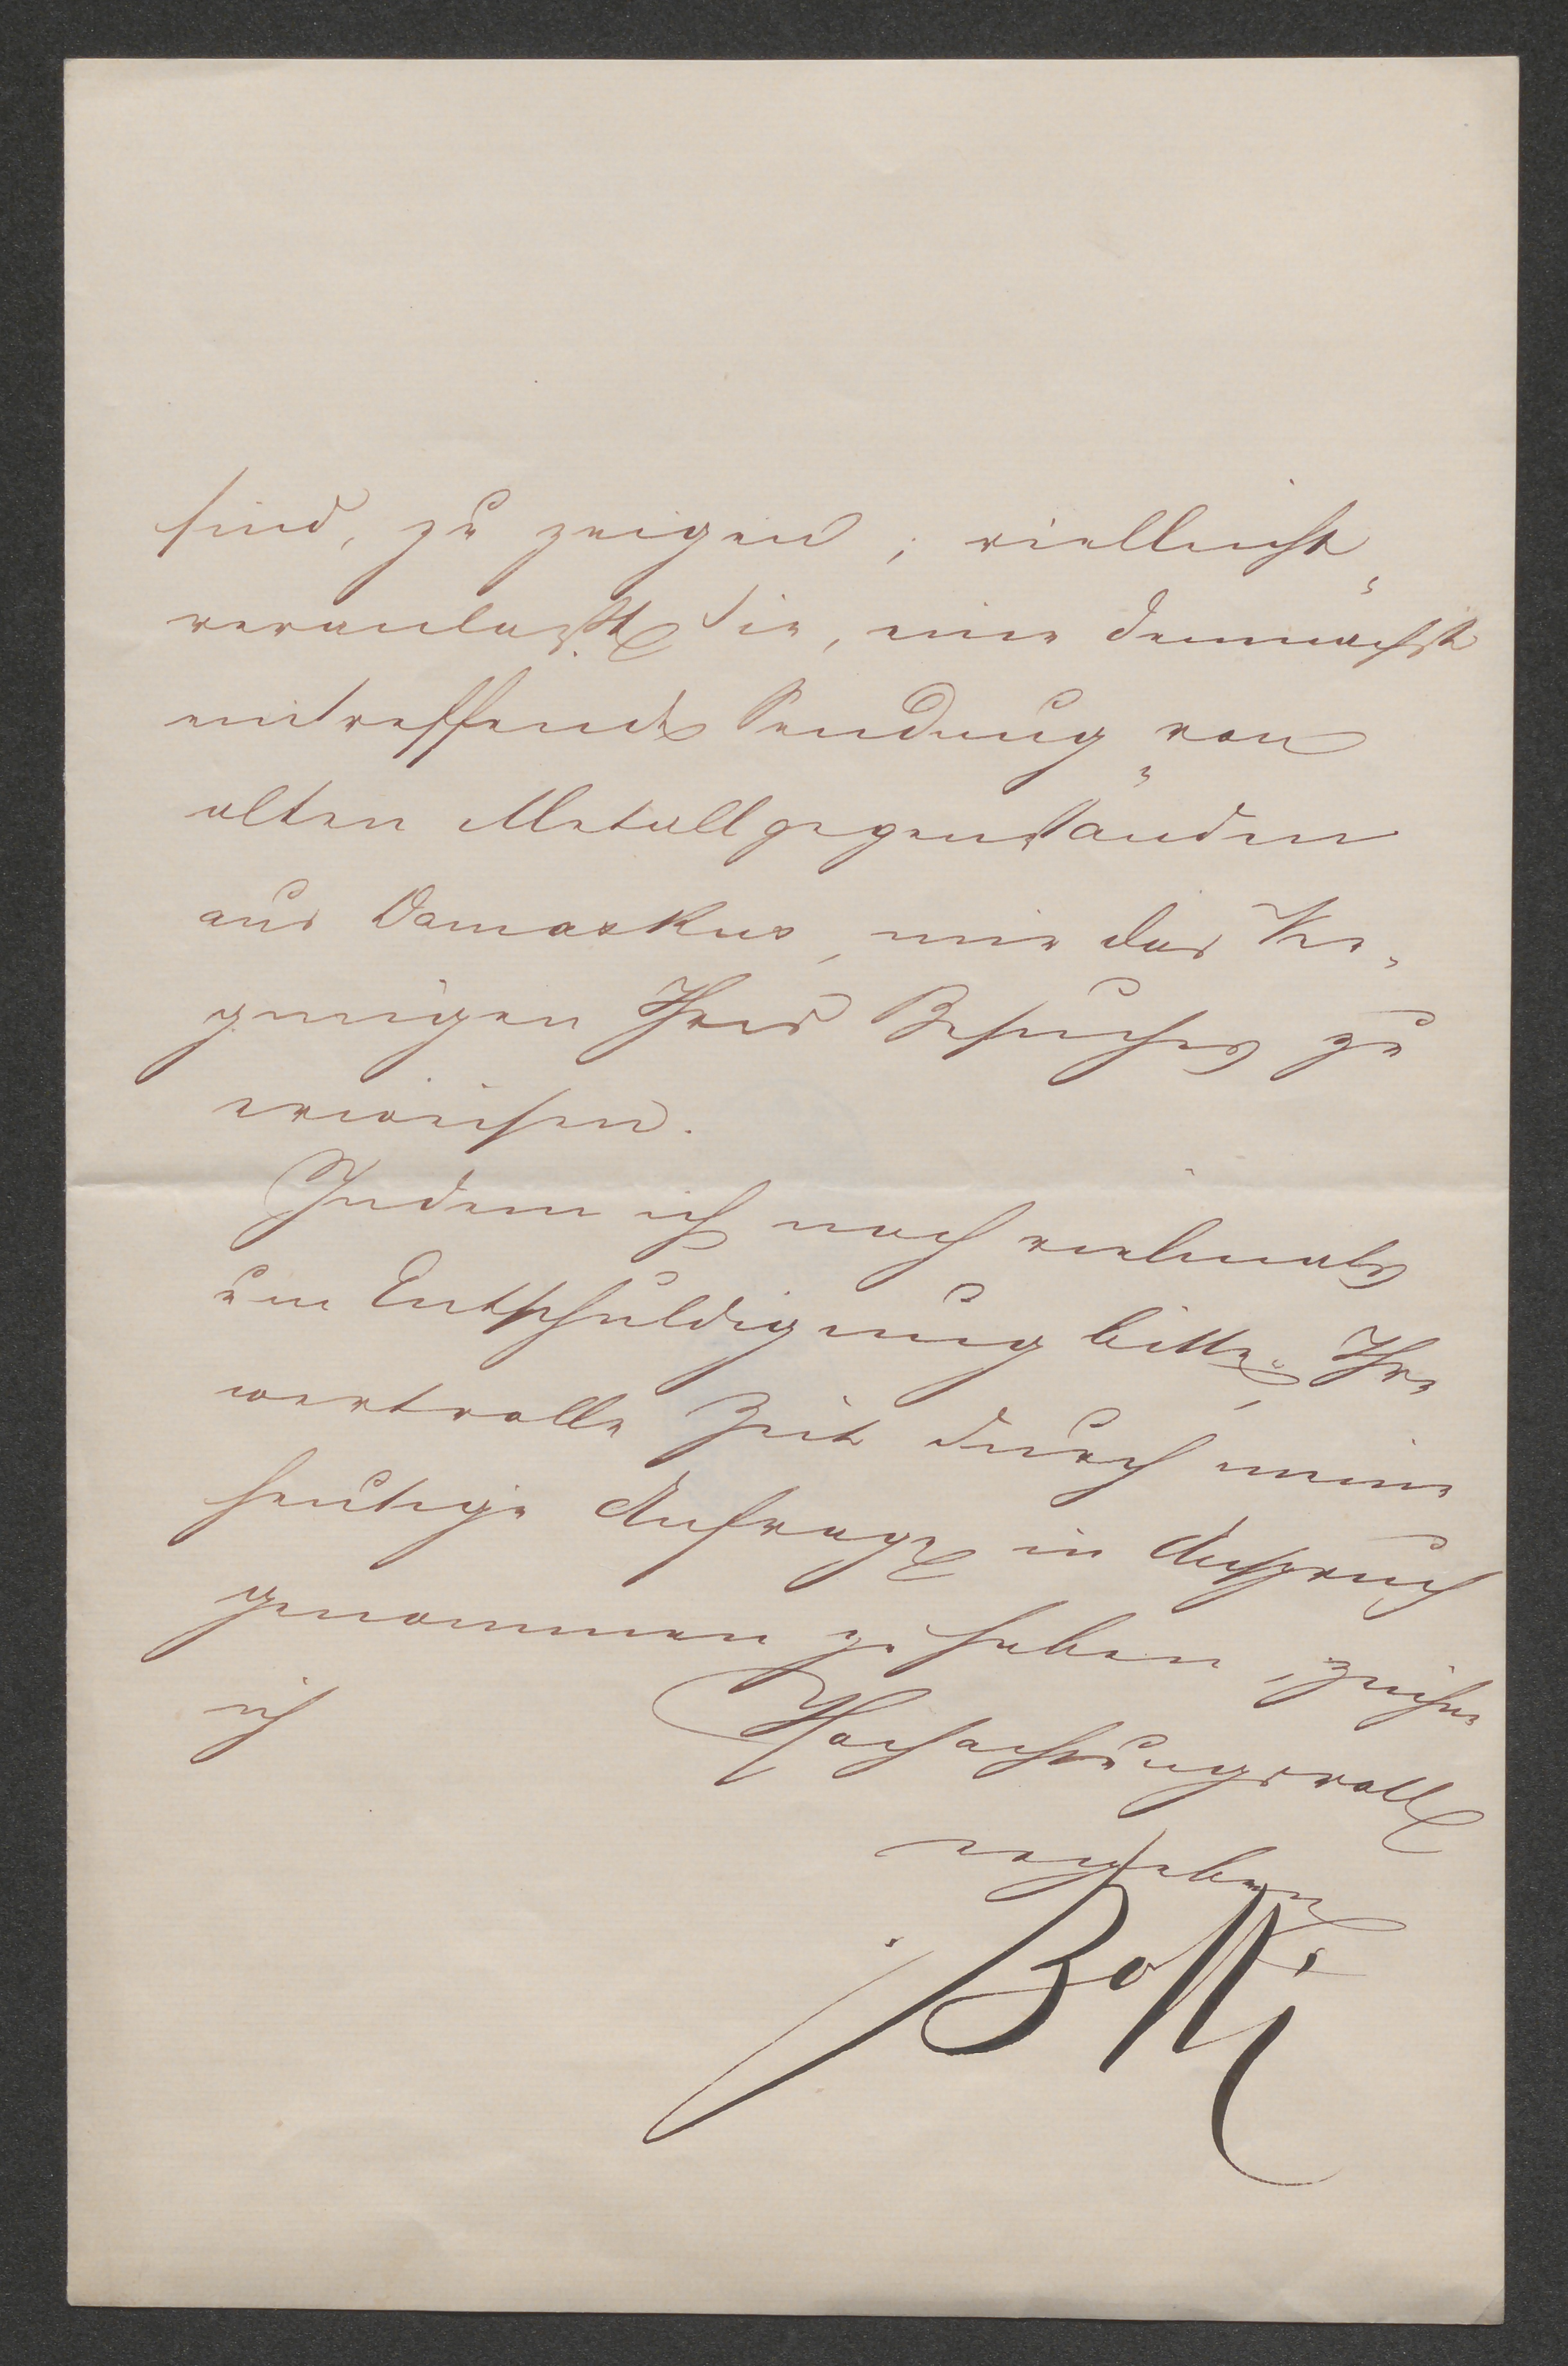 sind, zu zeigen; vielleicht
veranlaßt Sie, eine demnächst
eintreffende Sendung von
alten Metallgegenständen
aus Damaskus, mir das Ver-
gnügen Ihres Besuches zu
erweisen.
Indem ich noch vielmals
um Entschuldigung bitte, Ihre
wertvolle Zeit durch meine
heutige Anfrage in Anspruch
genommen zu haben, zeichne
ich Hochachtungsvoll
ergeben